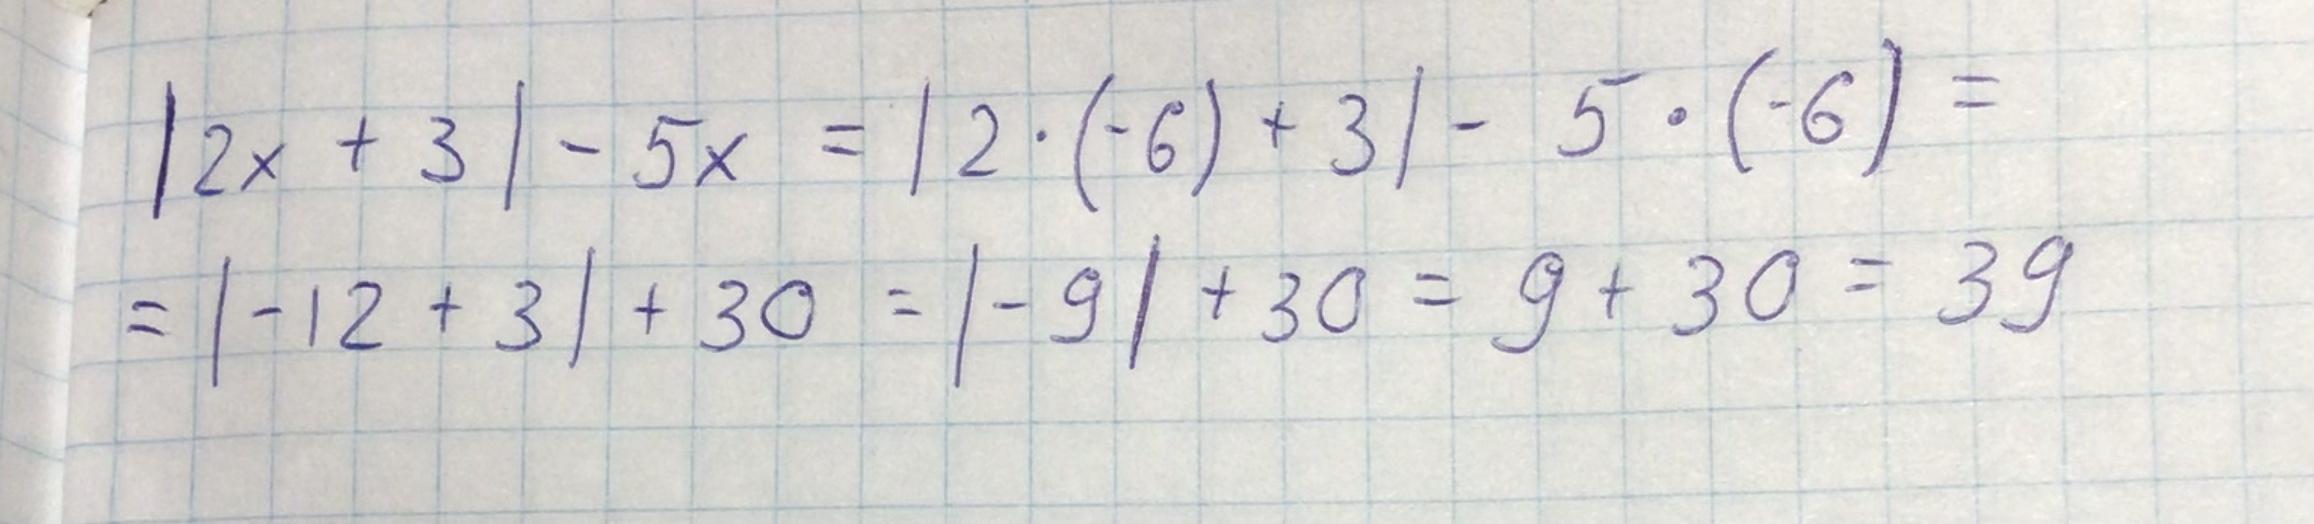 |2x + 3| - 5x = |2·(-6) + 3| - 5·(-6) =
= |-12 + 3| + 30 = |-9| + 30 = 9 + 30 = 39